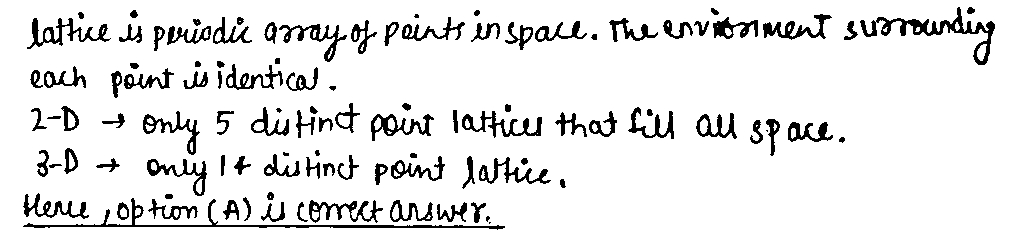 lattice is periodic array of points in space. The environment surrounding
each point is identical.
2-D → only 5 distinct point lattices that fill all space.
3-D → only 14 distinct point lattice.
Hence, option (A) is correct answer.